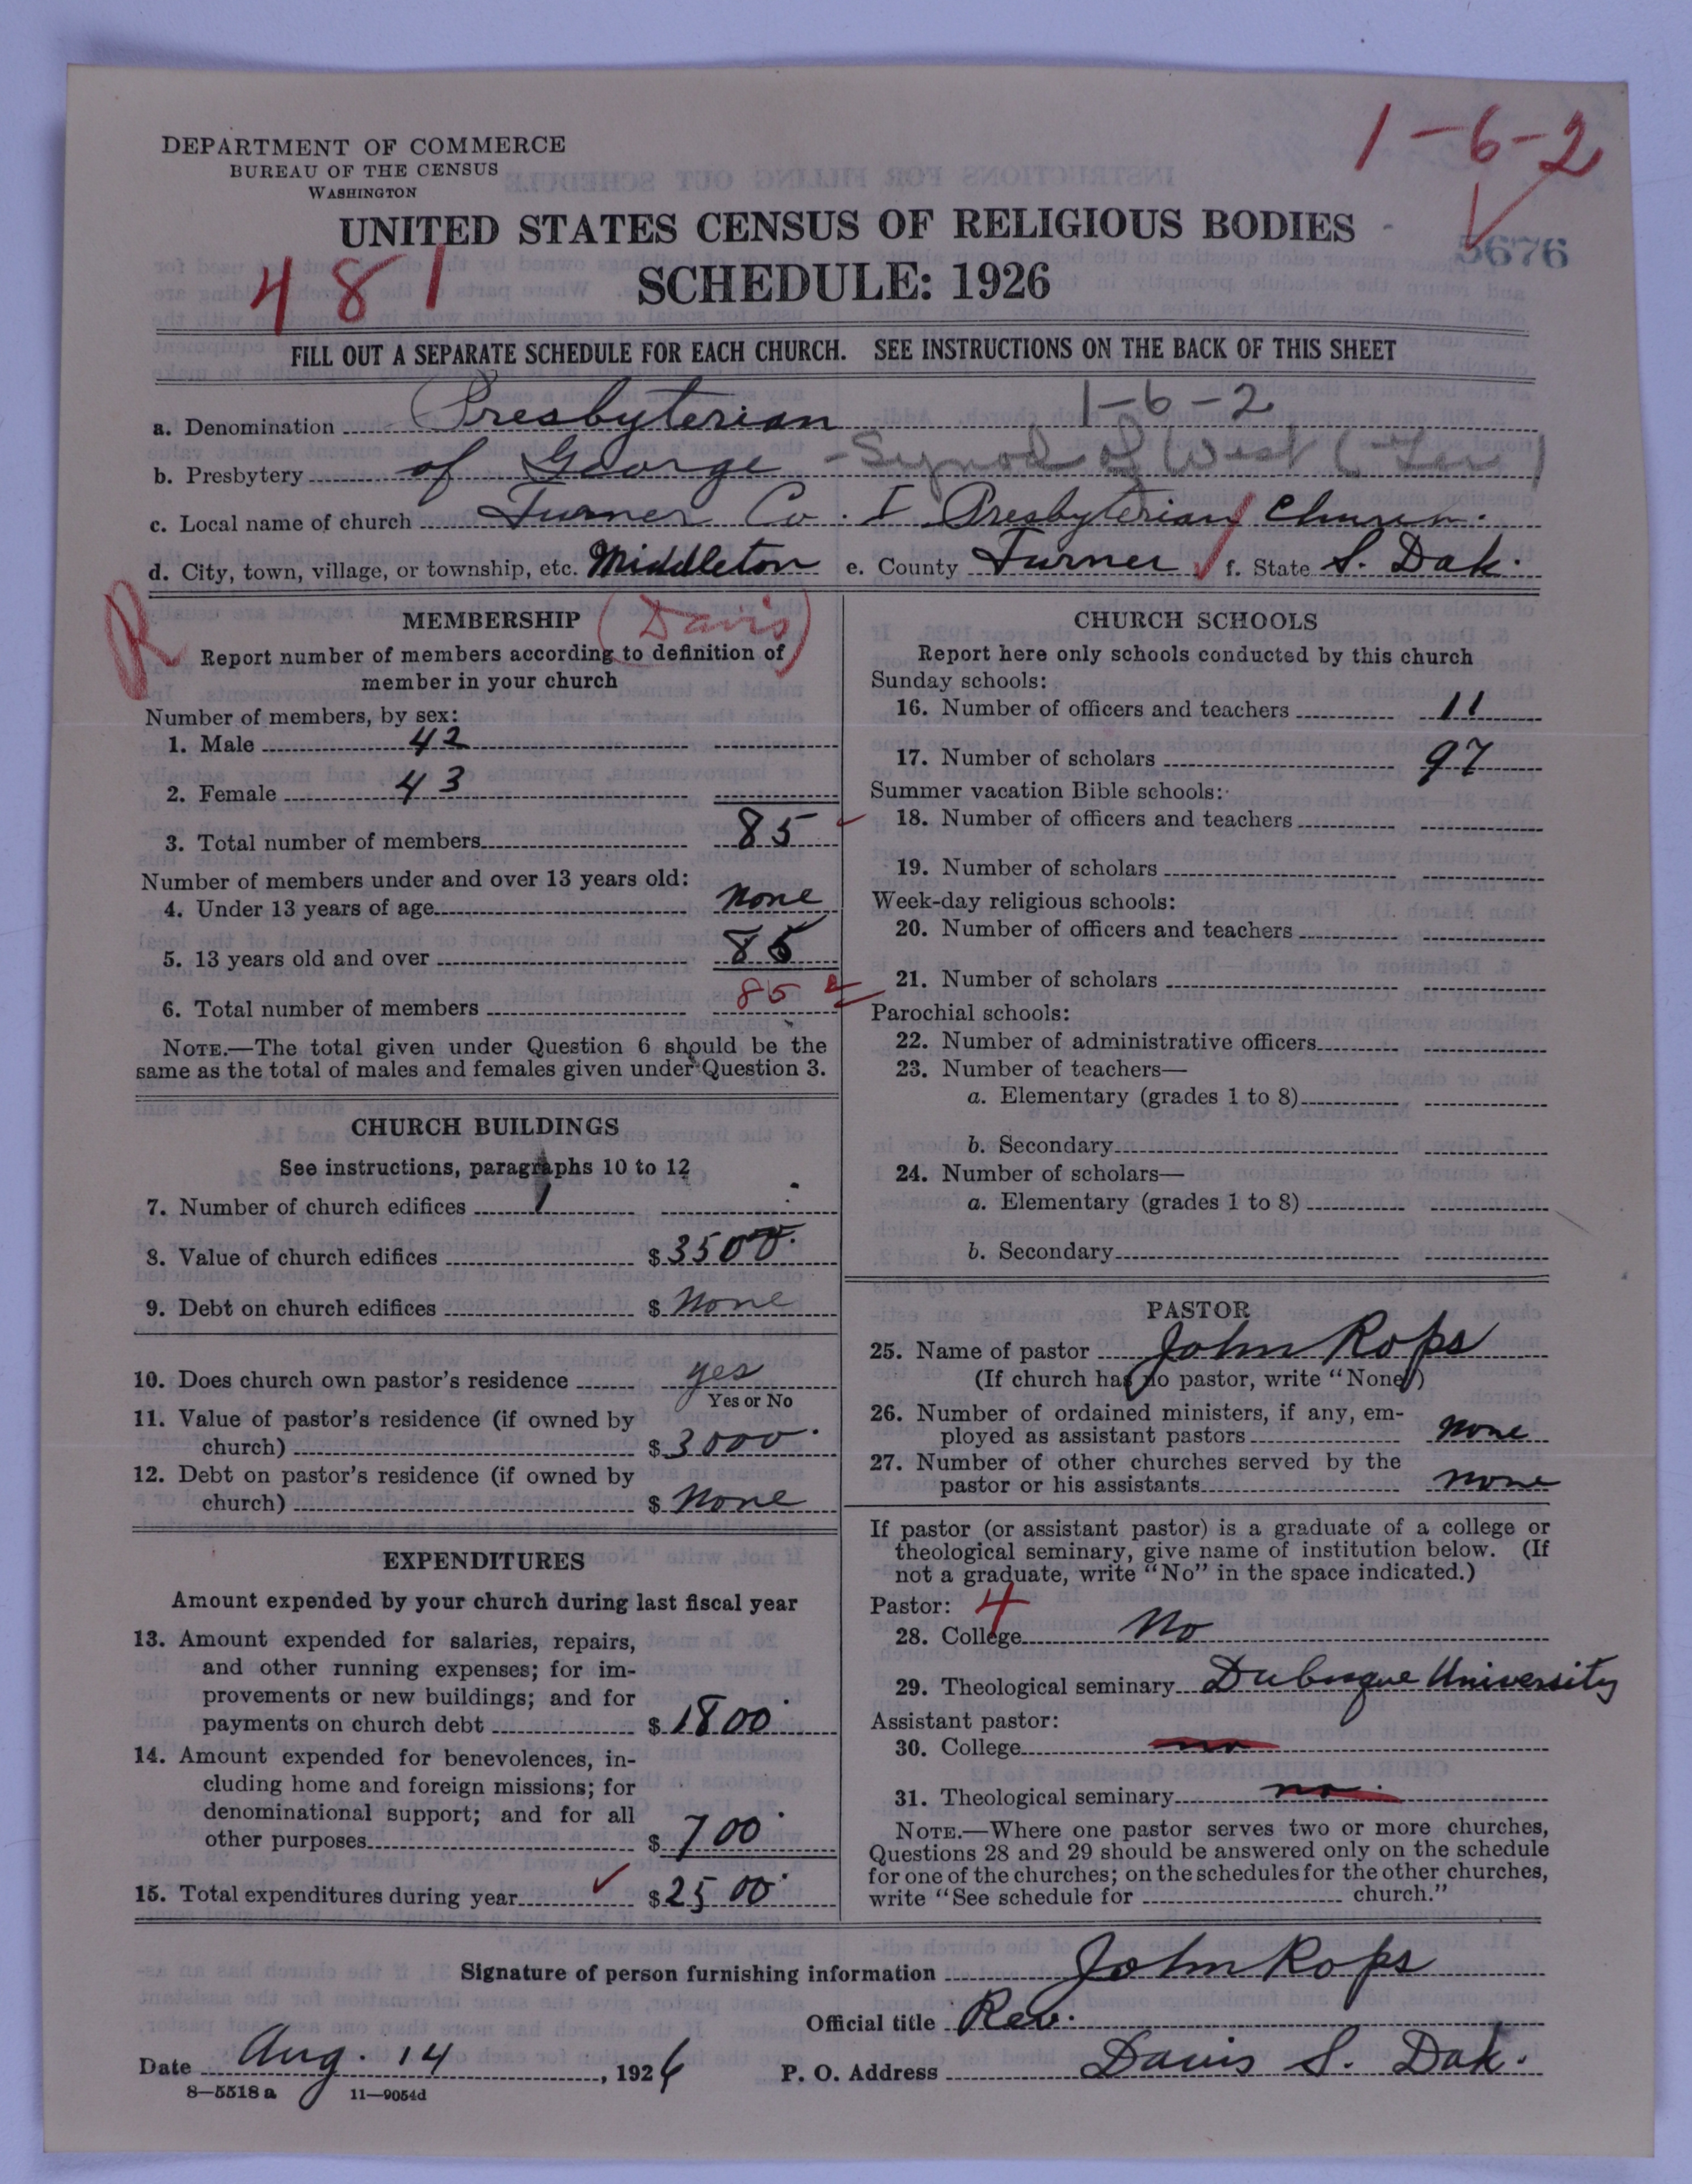 1-6-2
DEPARTMENT OF COMMERCE
BUREAU OF THE CENSUS
WASHINGTON
UNITED STATES CENSUS OF RELIGIOUS BODIES
5676
481
SCHEDULE: 1926
FILL OUT A SEPARATE SCHEDULE FOR EACH CHURCH. SEE INSTRUCTIONS ON THE BACK OF THIS SHEET
1-6-2
a. Denomination Presbyterian
b. Presbytery of George - Synod of West
c. Local name of church Turner Co. I Presbyterian Church.
d. City, town, village, or township, etc. Middleton e. County Turner f. State S. Dak.
R
MEMBERSHIP (Davis)
Report number of members according to definition of
member in your church
Number of members, by sex:
1. Male 42
2. Female 43
3. Total number of members 85
Number of members under and over 13 years old:
4. Under 13 years of age none
5. 13 years old and over 85
6. Total number of members 85
NOTE.—The total given under Question 6 should be the
same as the total of males and females given under Question 3.
CHURCH BUILDINGS
See instructions, paragraphs 10 to 12
7. Number of church edifices 1
8. Value of church edifices $3500.
9. Debt on church edifices $ None
10. Does church own pastor's residence yes
Yes or No
11. Value of pastor's residence (if owned by
church) $3000.
12. Debt on pastor's residence (if owned by
church) $ None
EXPENDITURES
Amount expended by your church during last fiscal year
13. Amount expended for salaries, repairs,
and other running expenses; for im-
provements or new buildings; and for
payments on church debt $1800.
14. Amount expended for benevolences, in-
cluding home and foreign missions; for
denominational support; and for all
other purposes $700.
15. Total expenditures during year $2500.
CHURCH SCHOOLS
Report here only schools conducted by this church
Sunday schools:
16. Number of officers and teachers 11
17. Number of scholars 97
Summer vacation Bible schools:
18. Number of officers and teachers
19. Number of scholars
Week-day religious schools:
20. Number of officers and teachers
21. Number of scholars
Parochial schools:
22. Number of administrative officers
23. Number of teachers—
a. Elementary (grades 1 to 8)
b. Secondary
24. Number of scholars—
a. Elementary (grades 1 to 8)
b. Secondary
PASTOR
25. Name of pastor John Rops
(If church has no pastor, write "None")
26. Number of ordained ministers, if any, em-
ployed as assistant pastors none
27. Number of other churches served by the
pastor or his assistants none
If pastor (or assistant pastor) is a graduate of a college or
theological seminary, give name of institution below. (If
not a graduate, write "No" in the space indicated.)
Pastor: 4
28. College No
29. Theological seminary Dubuque University
Assistant pastor:
30. College no
31. Theological seminary no
NOTE.—Where one pastor serves two or more churches,
Questions 28 and 29 should be answered only on the schedule
for one of the churches; on the schedules for the other churches,
write "See schedule for church."
Signature of person furnishing information John Rops
Official title Rev.
Date Aug. 14, 1926 P. O. Address Davis S. Dak.
8—5518 a 11—9054d